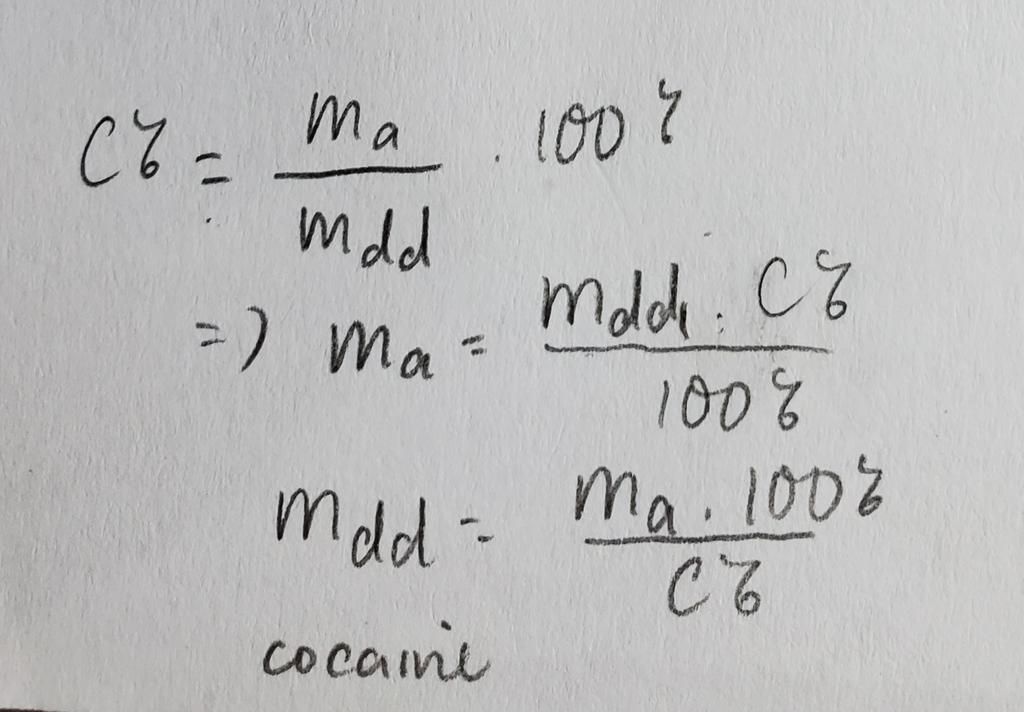 C% = ma / mdd . 100%
=> ma = mdd . C% / 100%
mdd = ma . 100% / C%
cocaine